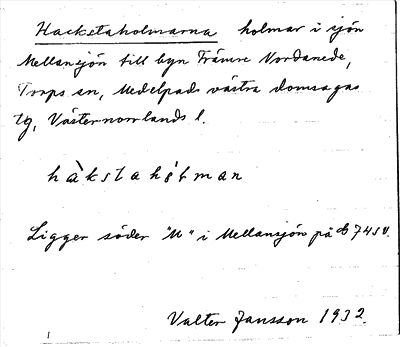 Hackstaholmarna holmar i sjön
Mellansjön till byn Främre Nordanede,
Torps sn, Medelpads västra domsagas
tg, Västernorrlands l.
hàkstahólman
Ligger söder "M" i Mellansjön på
Valter Jansson 1932.